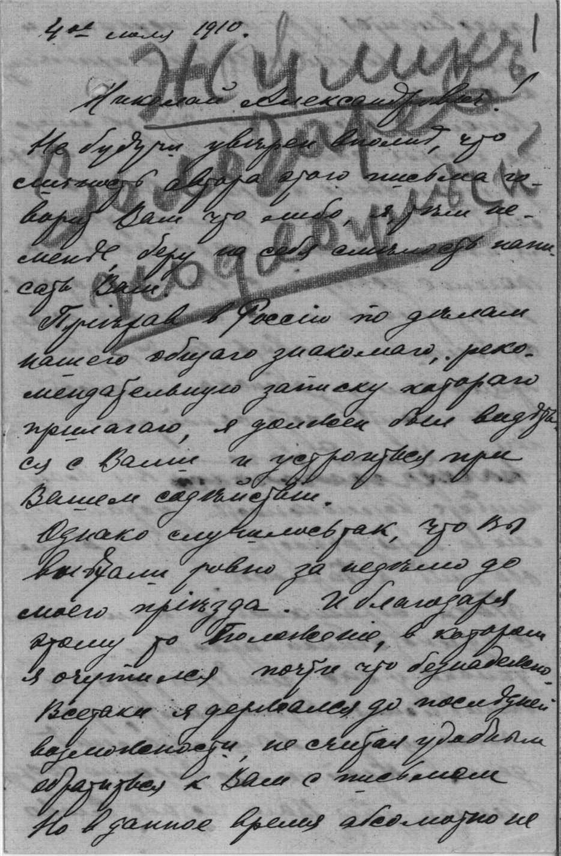 4ое июля 1910.
Жуликъ
Николай Александровичъ!
Не будучи увѣрен вполнѣ, что
личность автора этого письма го-
ворит Вам что либо, я, тѣм не-
менѣе, беру на себя смѣлость напи-
сать Вам.
Пріѣхав в Россію по дѣлам
нашего общаго знакомаго, реко-
мендательную записку котораго
прилагаю, я должен был видѣть-
ся с Вами и устроиться при
Вашем содѣйствіи.
Однако случилось так, что Вы
выѣхали ровно за недѣлю до
моего пріѣзда. И благодаря
этому то положеніе, в котором
я очутился почти что безнадежно.
Всетаки я держался до послѣдней
возможности, не считая удобным
обратиться к Вам с письмом
Но в данное время абсолютно не